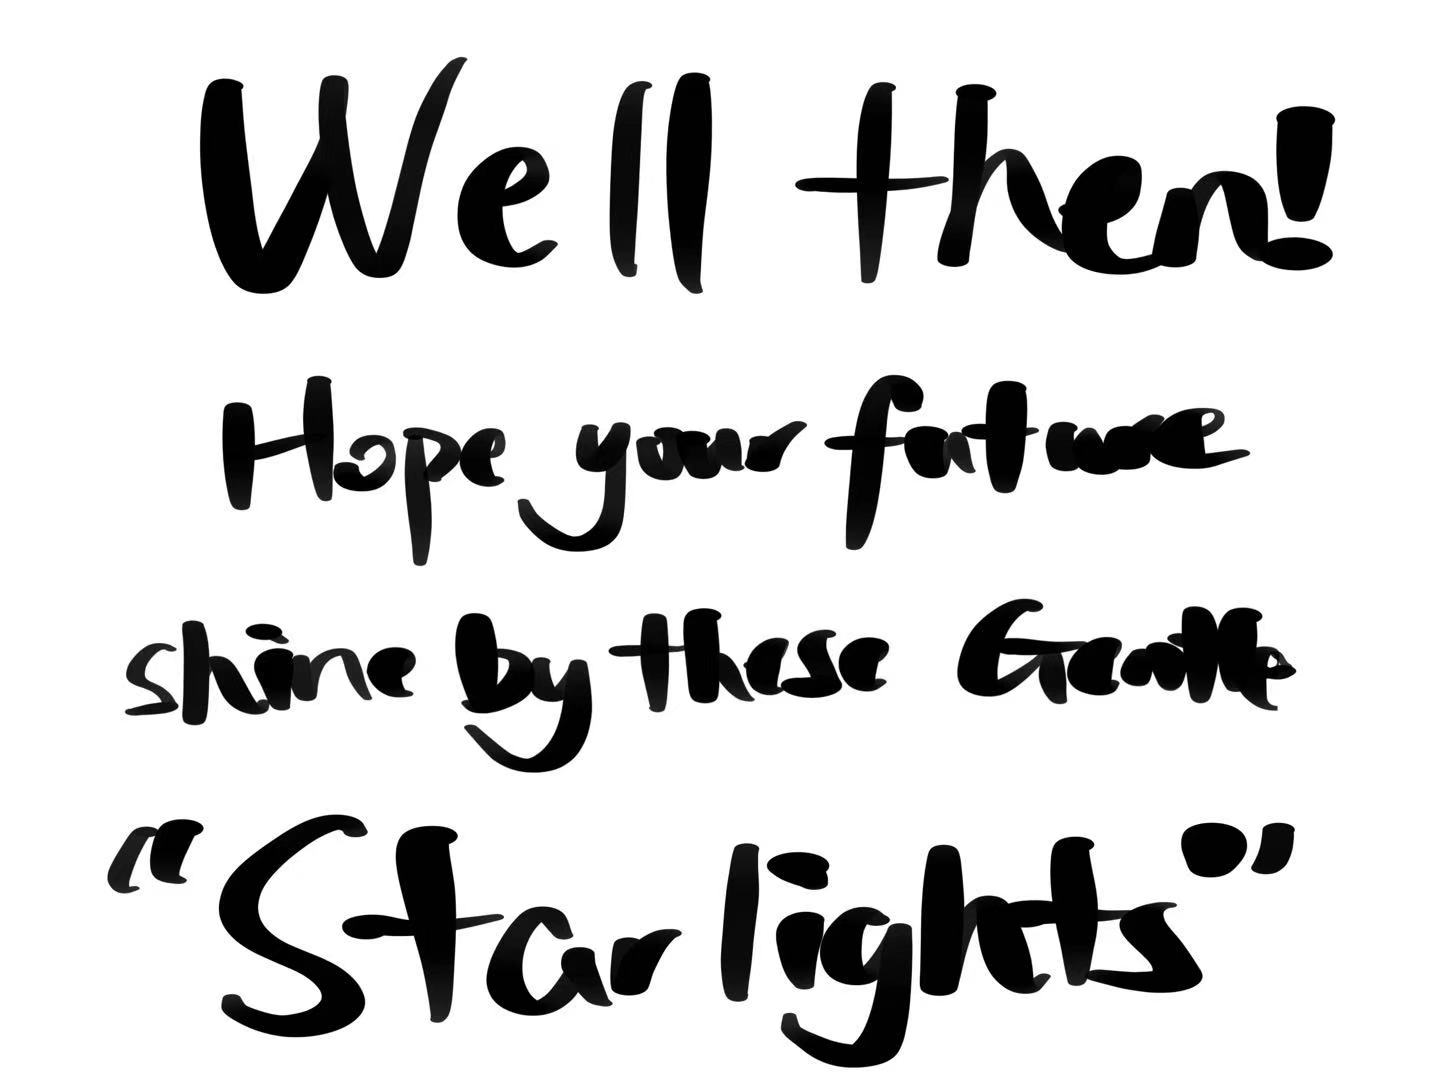 Well then!
Hope your future
shine by these Gentle
"Starlights"